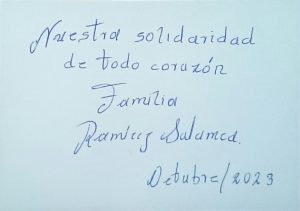 Nuestra solidaridad
de todo corazón
Familia
Ramírez Salamea.
Octubre/2023